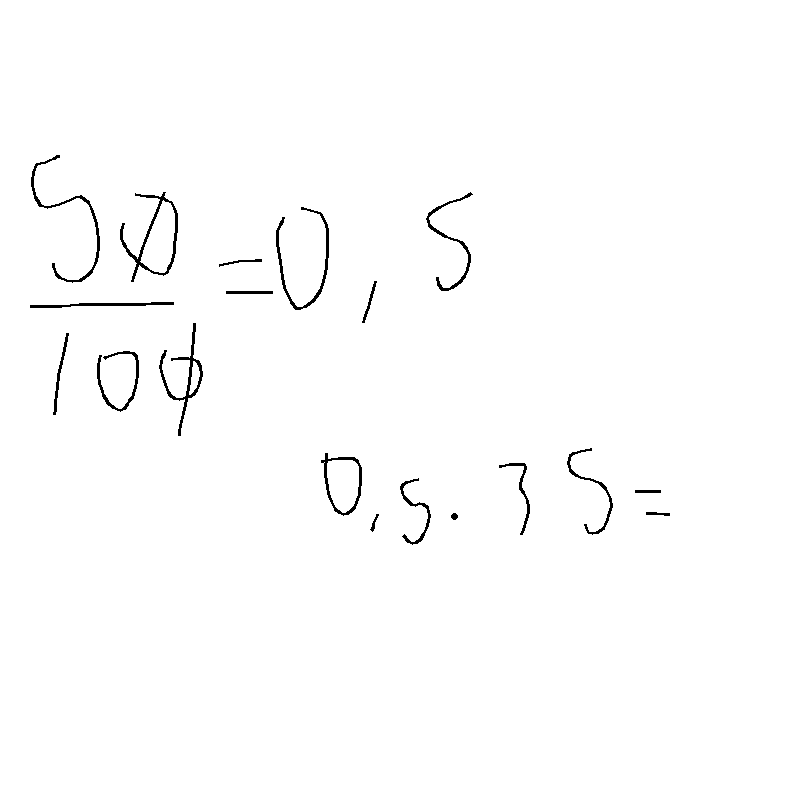 50/100 = 0,5
0,5 · 35 =